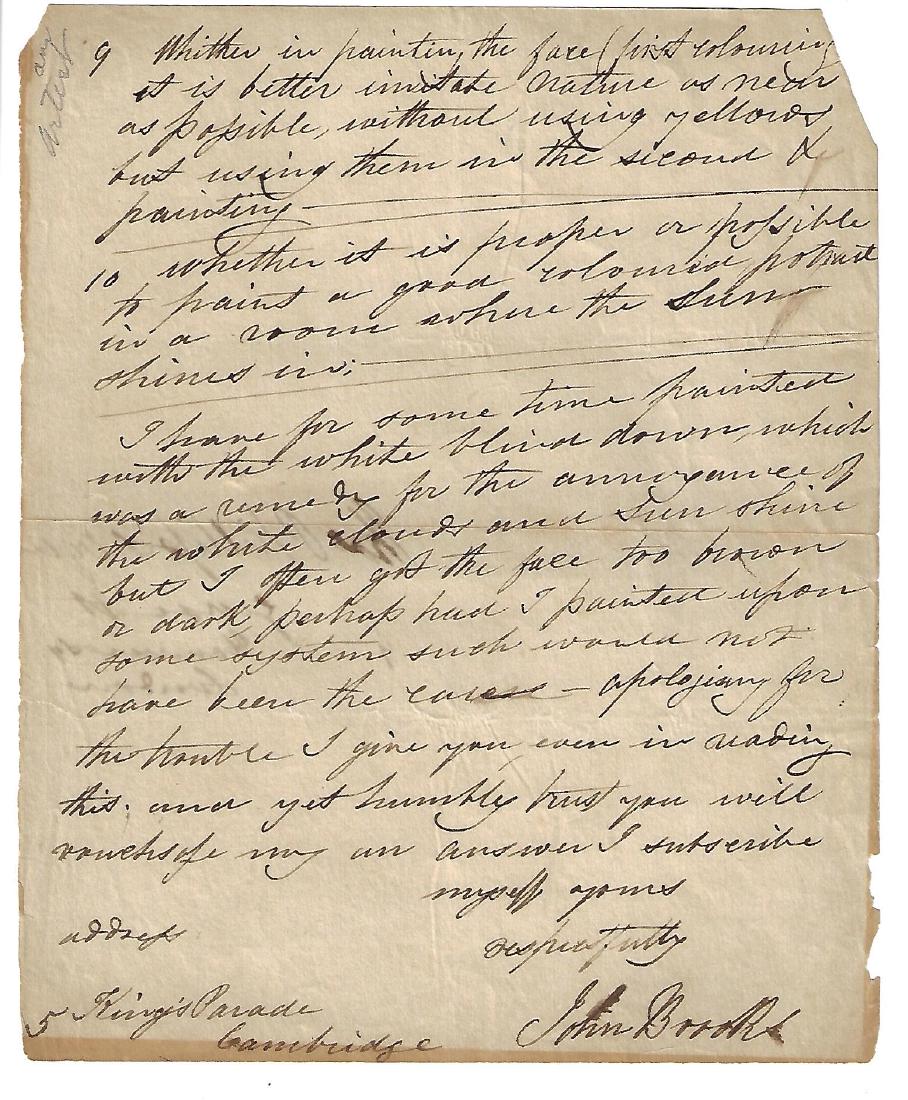 an
Artist
9 Whither in painten, the face (first colouring
it is better imitate nature as near
as possible, without using yellows
but using them in the second &
painting
10 whether it is proper or possible
to paint a good coloured potrait
in a room where the Sun
shines in;
I have for some time painted
with the white blind down, which
was a remedy for the annoyance of
the white clouds and Sun shine
but I often got the face too brown
or dark, perhaps had I painted upon
some system such would not
have been the case — apologising for
the trouble I give you even in reading
this. and yet humbly trust you will
vouchsafe my an answer I subscribe
myself yours
address respectfully
5 King's Parade John Brooks
Cambridge